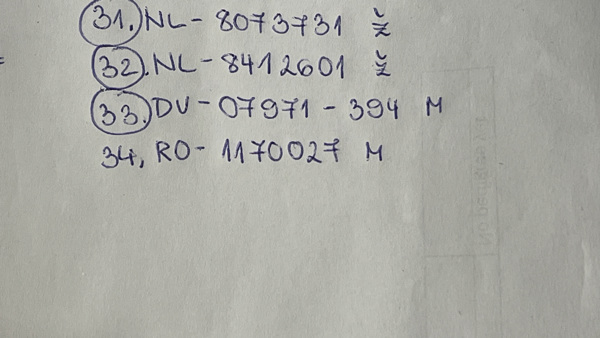 31. NL - 8073731 ž
32. NL - 8412601 ž
33. DV - 07971 - 394 M
34, RO - 1170027 M